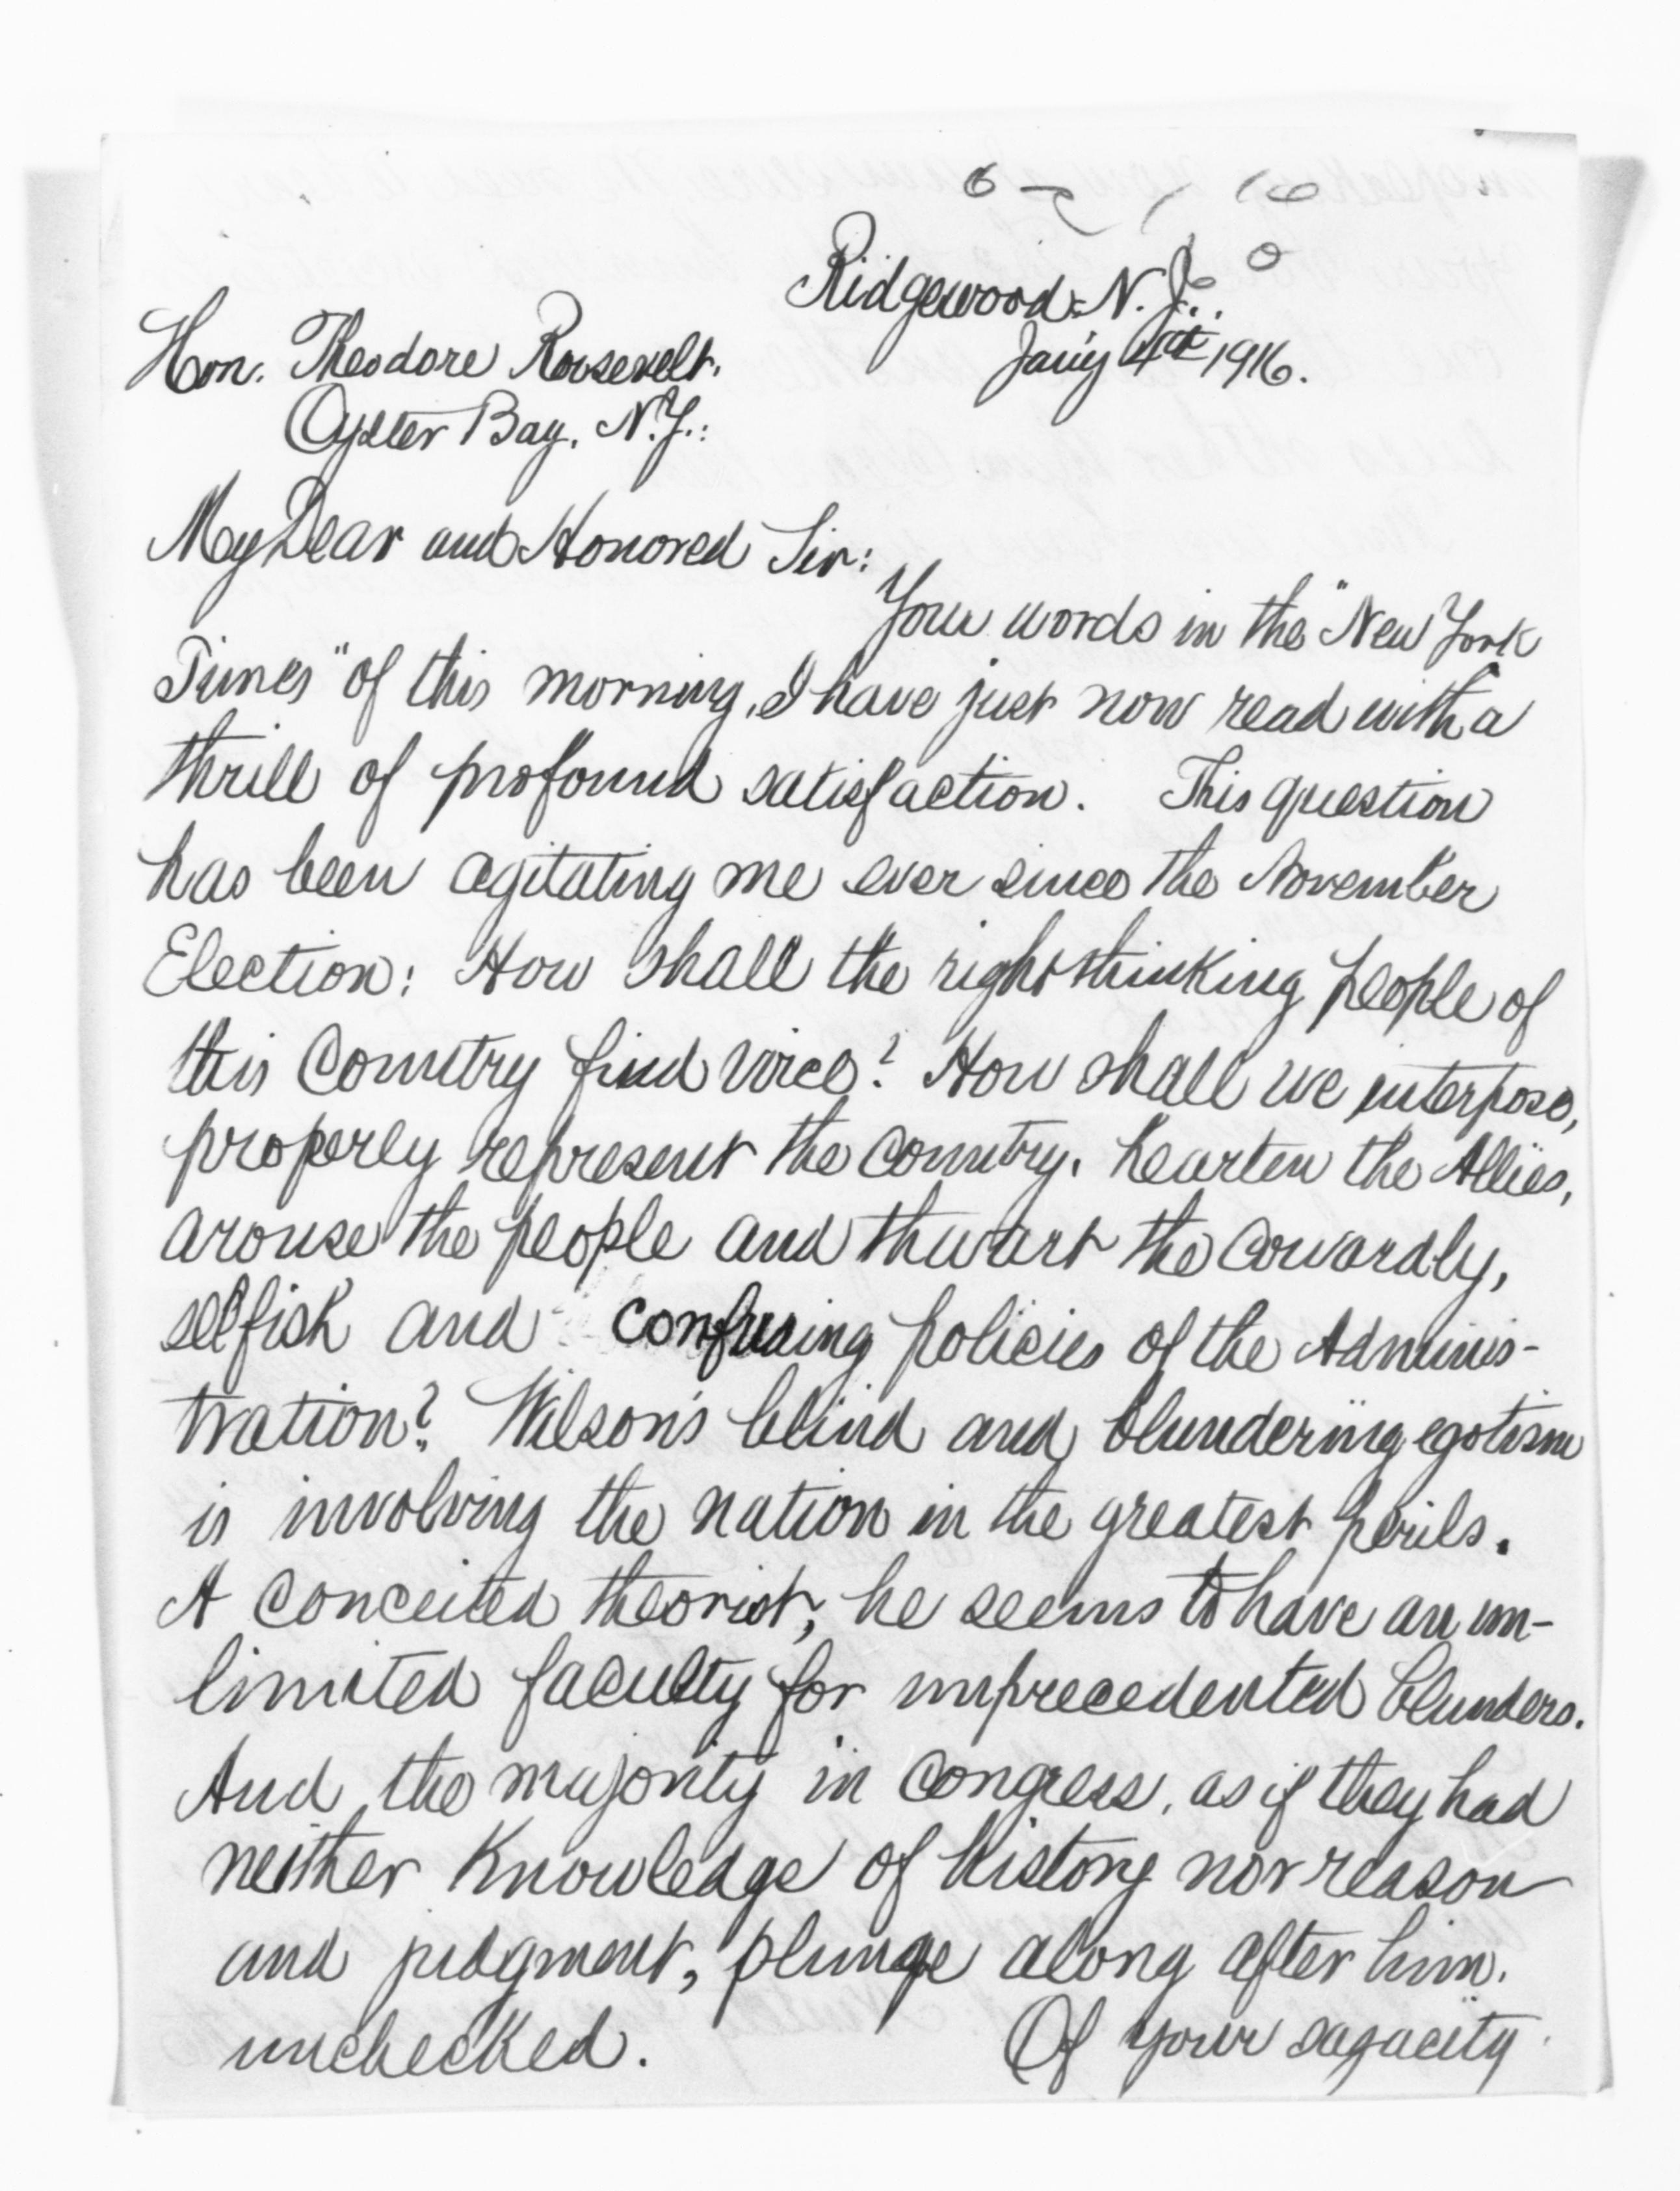 Ridgewood, N. J.,
Jan'y 4th 1916.
Hon. Theodore Roosevelt,
Oyster Bay, N.Y.:
My Dear and Honored Sir:
Your words in the "New York
Times" of this morning, I have just now read with a
thrill of profound satisfaction. This question
has been agitating me ever since the November
Election: How shall the right thinking people of
this Country find voice? How shall we interpose,
properly represent the country, hearten the Allies,
arouse the people and thwart the cowardly,
selfish and confusing policies of the Adminis-
tration? Wilson's blind and blundering egotism
is involving the nation in the greatest perils.
A conceited theorist, he seems to have an un-
limited faculty for unprecedented blunders.
And the majority in Congress, as if they had
neither knowledge of history nor reason
and judgment, plunge along after him,
unchecked. Of your sagacity